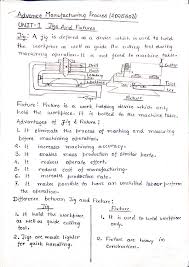 Advance Manufacturing Process (2025602)
UNIT-1 Jigs And Fixtures
Jig: A jig is defind as a device which is used to hold
the workpiece as well as guide the cutting tool during
machining operation. It is not fixed to machine table.
Fixture: Fixture is a work holding device which only
hold the workpiece. It is bolted to the machine table.
Advantages of Jig & Fixture:
1. It eliminate the process of marking and measuring
before machining operation.
2. It increase machining accuracy.
3. It enables mass production of similar parts.
4. It reduce operator's labour.
5. It reduce cost of manufacturing.
6. It increase production.
7. It make possible to have an unskilled labour perform
the operation.
Difference between Jig and Fixture:
Jig
Fixture
1. It is hold the workpiece
as well as guide cutting
tool.
1. It is used to hold workpiece
only.
2. Jigs are made lighter
for quick handling.
2. Fixture are heavy in
construction.